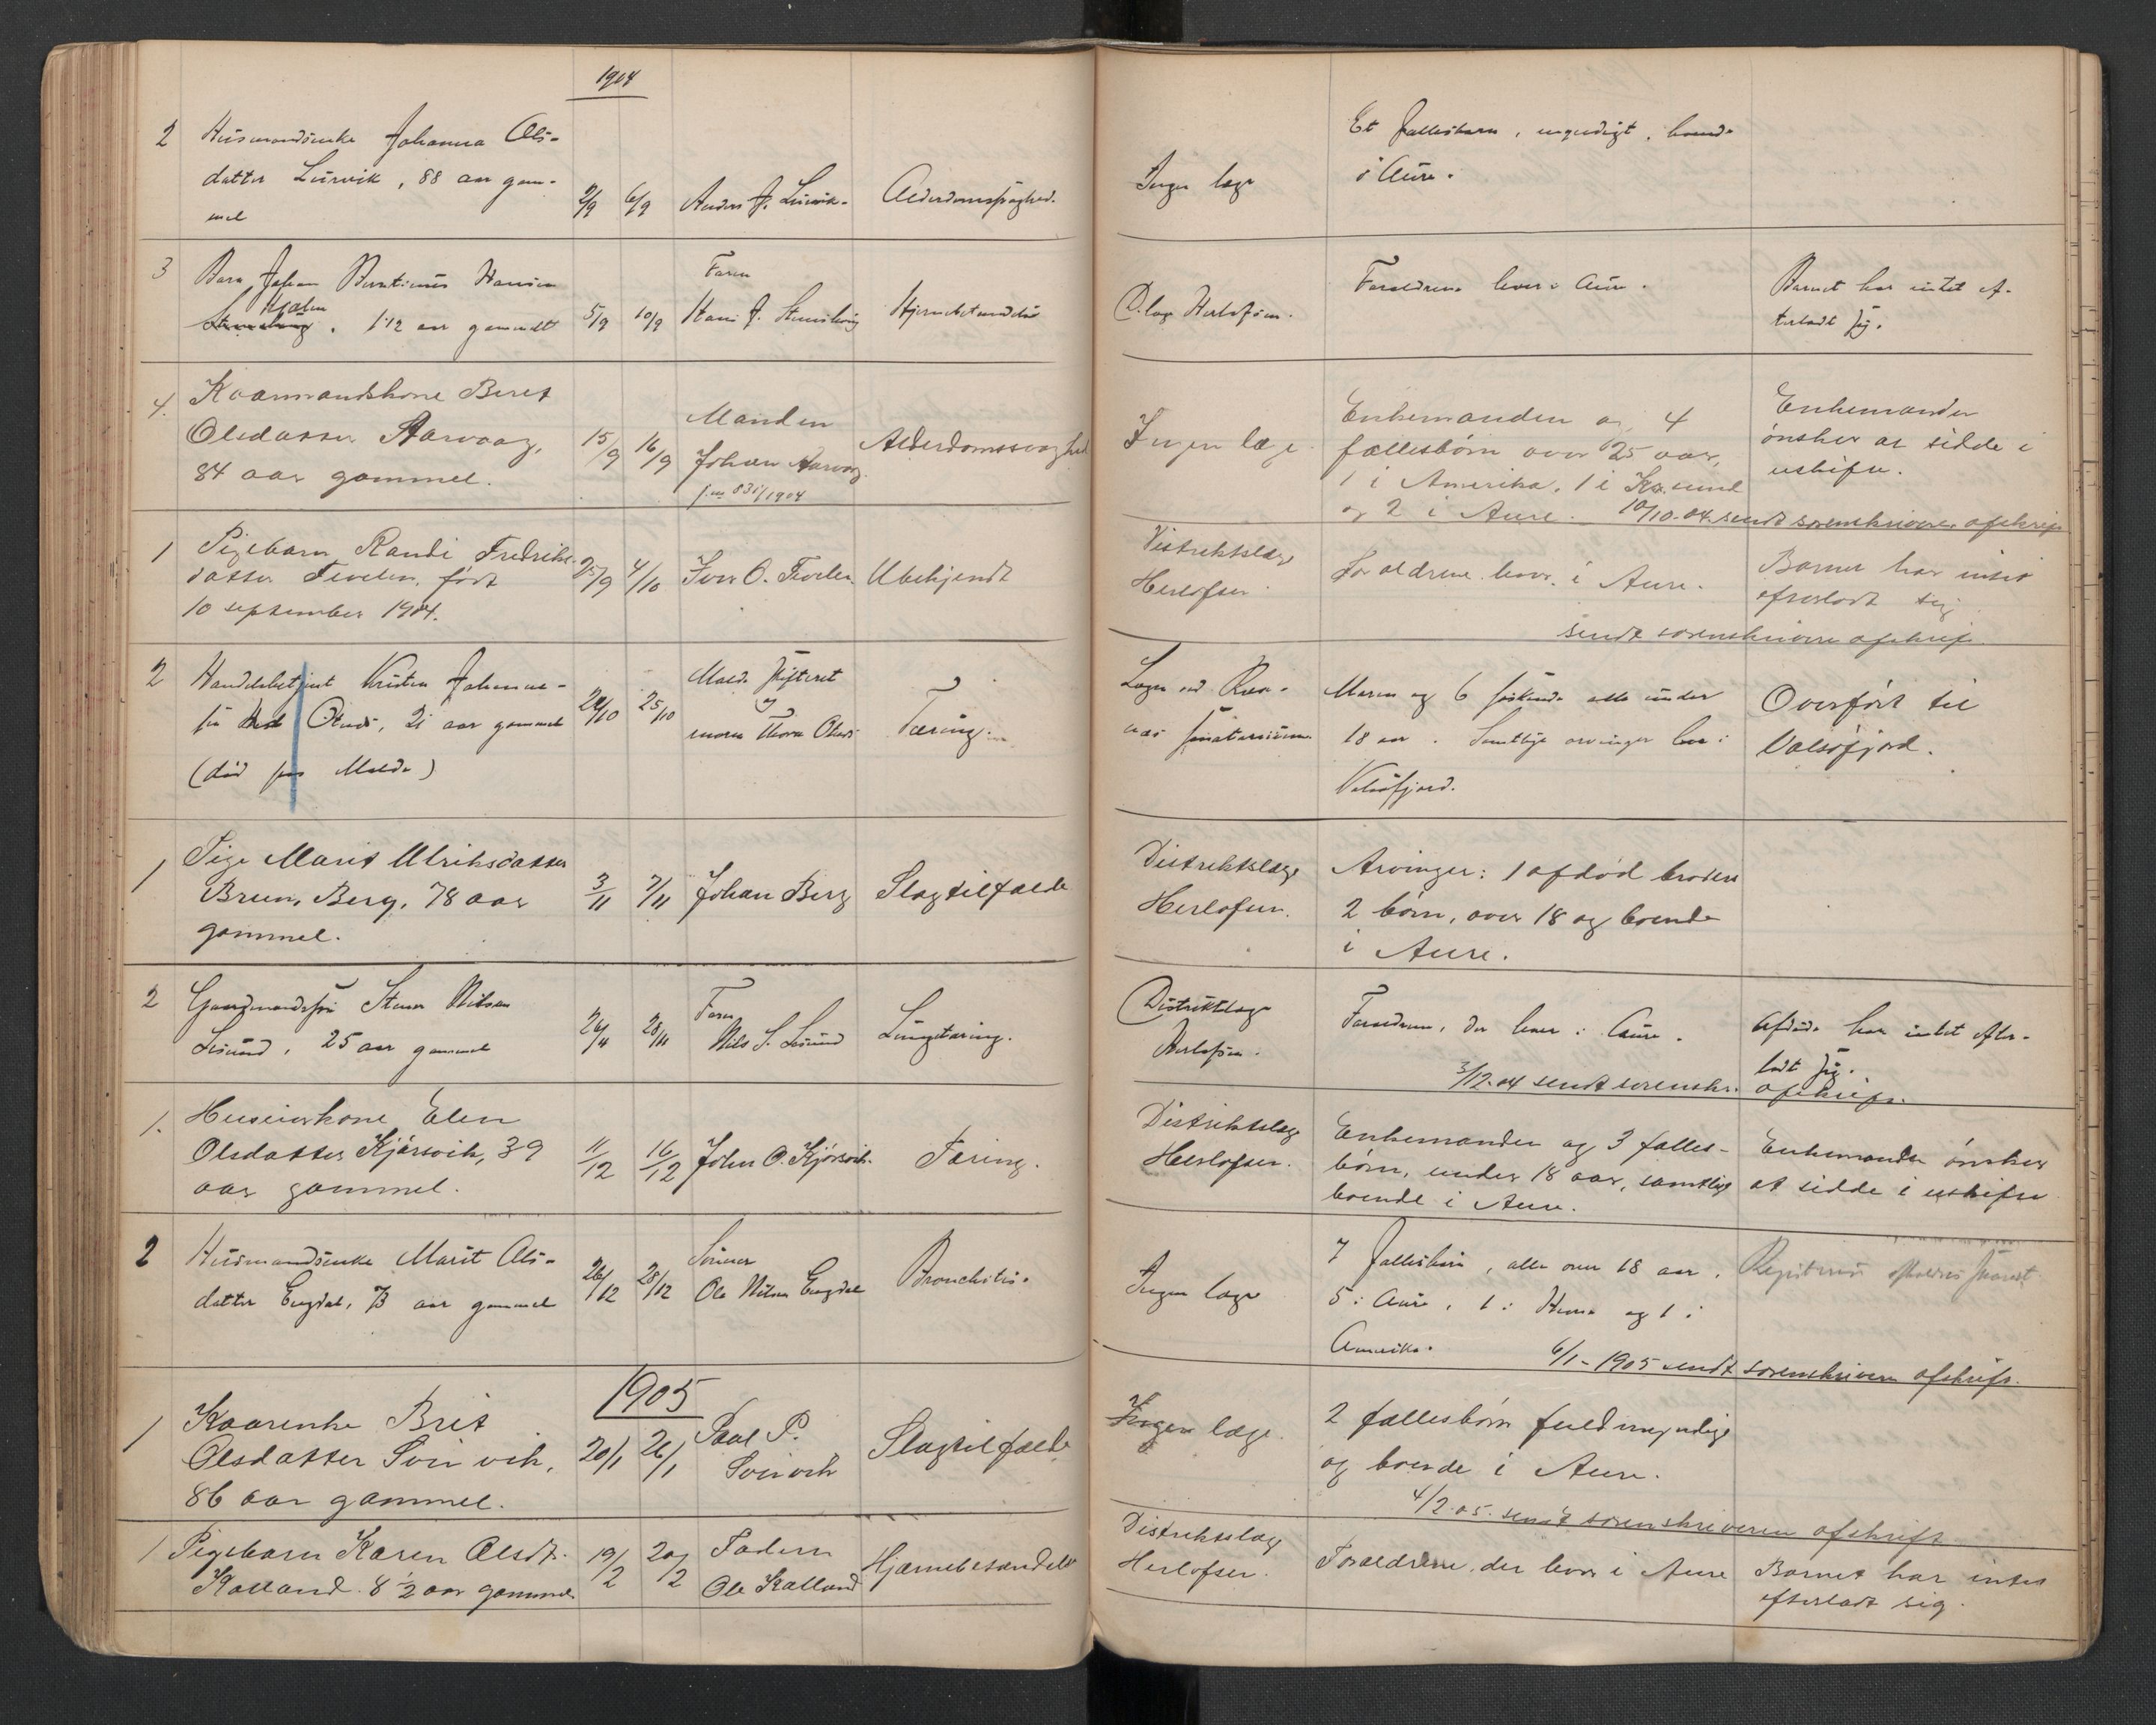 1904
2 Husmandsenke Johanna Ols-
datter Lurvik, 88 aar gam-
mel
2/9 6/9 Anders J. Lurvik. Alderdomssvaghed.
Ingen læge
Et fællesbarn, myndigt, boende
i Aure.
3 Barn Johan Hansen
1 1/2 aar gammelt
5/9 10/9 Faren
Hans J.
D. læge Herlofsen.
Forældrene lever i Aure.
Barnet har intet ef-
terladt sig.
4. Kaarmandskone Beret
Olsdatter Aarvaag,
84 aar gammel.
15/9 16/9 Manden
Johan Aarvaag
j.no 831/1904
Alderdomssvaghed
Ingen læge
Enkemanden og 4
fællesbørn over 25 aar,
1 i Amerika, 1 i Kr.sund
og 2 i Aure.
Enkemanden
ønsker at sidde i
uskifte.
10/10.04. sendt sorenskriveren afskrift
1 Pigebarn Randi Fredriks-
datter Tevelen, født
10 september 1904.
25/9 4/10 Iver O. Tevelen Ubekjendt
Distriktslæge
Herlofsen
Forældrene lever i Aure.
Barnet har intet
efterladt sig
sendt sorenskriveren afskrift
2 Handelsbetjent Kristen Johannes-
søn Otnes, 21 aar gammel
(død paa Molde)
24/10 25/10 Molde skifteret
og
moren Thora Otnes
Tæring.
Lægen ved Rek-
næs sanatorium
Moren og 6 søskende alle under
18 aar. Samtlige arvinger bor i
Valsøfjord.
Overført til
Valsøfjord.
1 Pige Marit Ulriksdatter
Brun, Berg, 78 aar
gammel.
3/11 7/11 Johan Berg Slagtilfælde
Distriktslæge
Herlofsen.
Arvinger: 1 afdød broders
2 børn, over 18 og boende
i Aure.
2 Gaardmandssøn Stener Nilsen
Lesund, 25 aar gammel
26/11 28/11 Faren
Nils S. Lesund
Lungetæring.
Distriktslæge
Herlofsen.
Forældrene, der lever i Aure.
Afdøde har intet efter-
ladt sig.
3/12.04 sendt sorenskr. afskrift.
1. Huseierkone Elen
Olsdatter Kjørsvik, 39
aar gammel.
11/12 16/12 Johan O. Kjørsvik. Tæring.
Distriktslæge
Herlofsen.
Enkemanden og 3 fælles-
børn, under 18 aar, samtlige
boende i Aure.
Enkemanden ønsker
at sidde i uskifte
2 Husmandsenke Marit Ols-
datter Engdal, 73 aar gammel
26/12 28/12 Sønnen
Ole Nilsen Engdal
Bronchitis.
Ingen læge
7 fællesbørn, alle over 18 aar,
5 i Aure, 1 i Hemne og 1 i
Amerika.
6/1-1905 sendt sorenskriveren afskrift.
1905
1 Kaarenke Brit
Olsdatter Svinvik,
86 aar gammel.
20/1 26/1 Paul P.
Svinvik
Slagtilfælde
Ingen læge.
2 fællesbørn fuldmyndige
og boende i Aure.
4/2.05. sendt sorenskriveren afskrift
1 Pigebarn Karen Olsdt.
Kalland. 8 1/2 aar gammel
19/2 20/2 Faderen
Ole Kalland
Hjernebetændelse
Distriktslæge
Herlofsen.
Forældrene, der lever i Aure
Barnet har intet
efterladt sig.